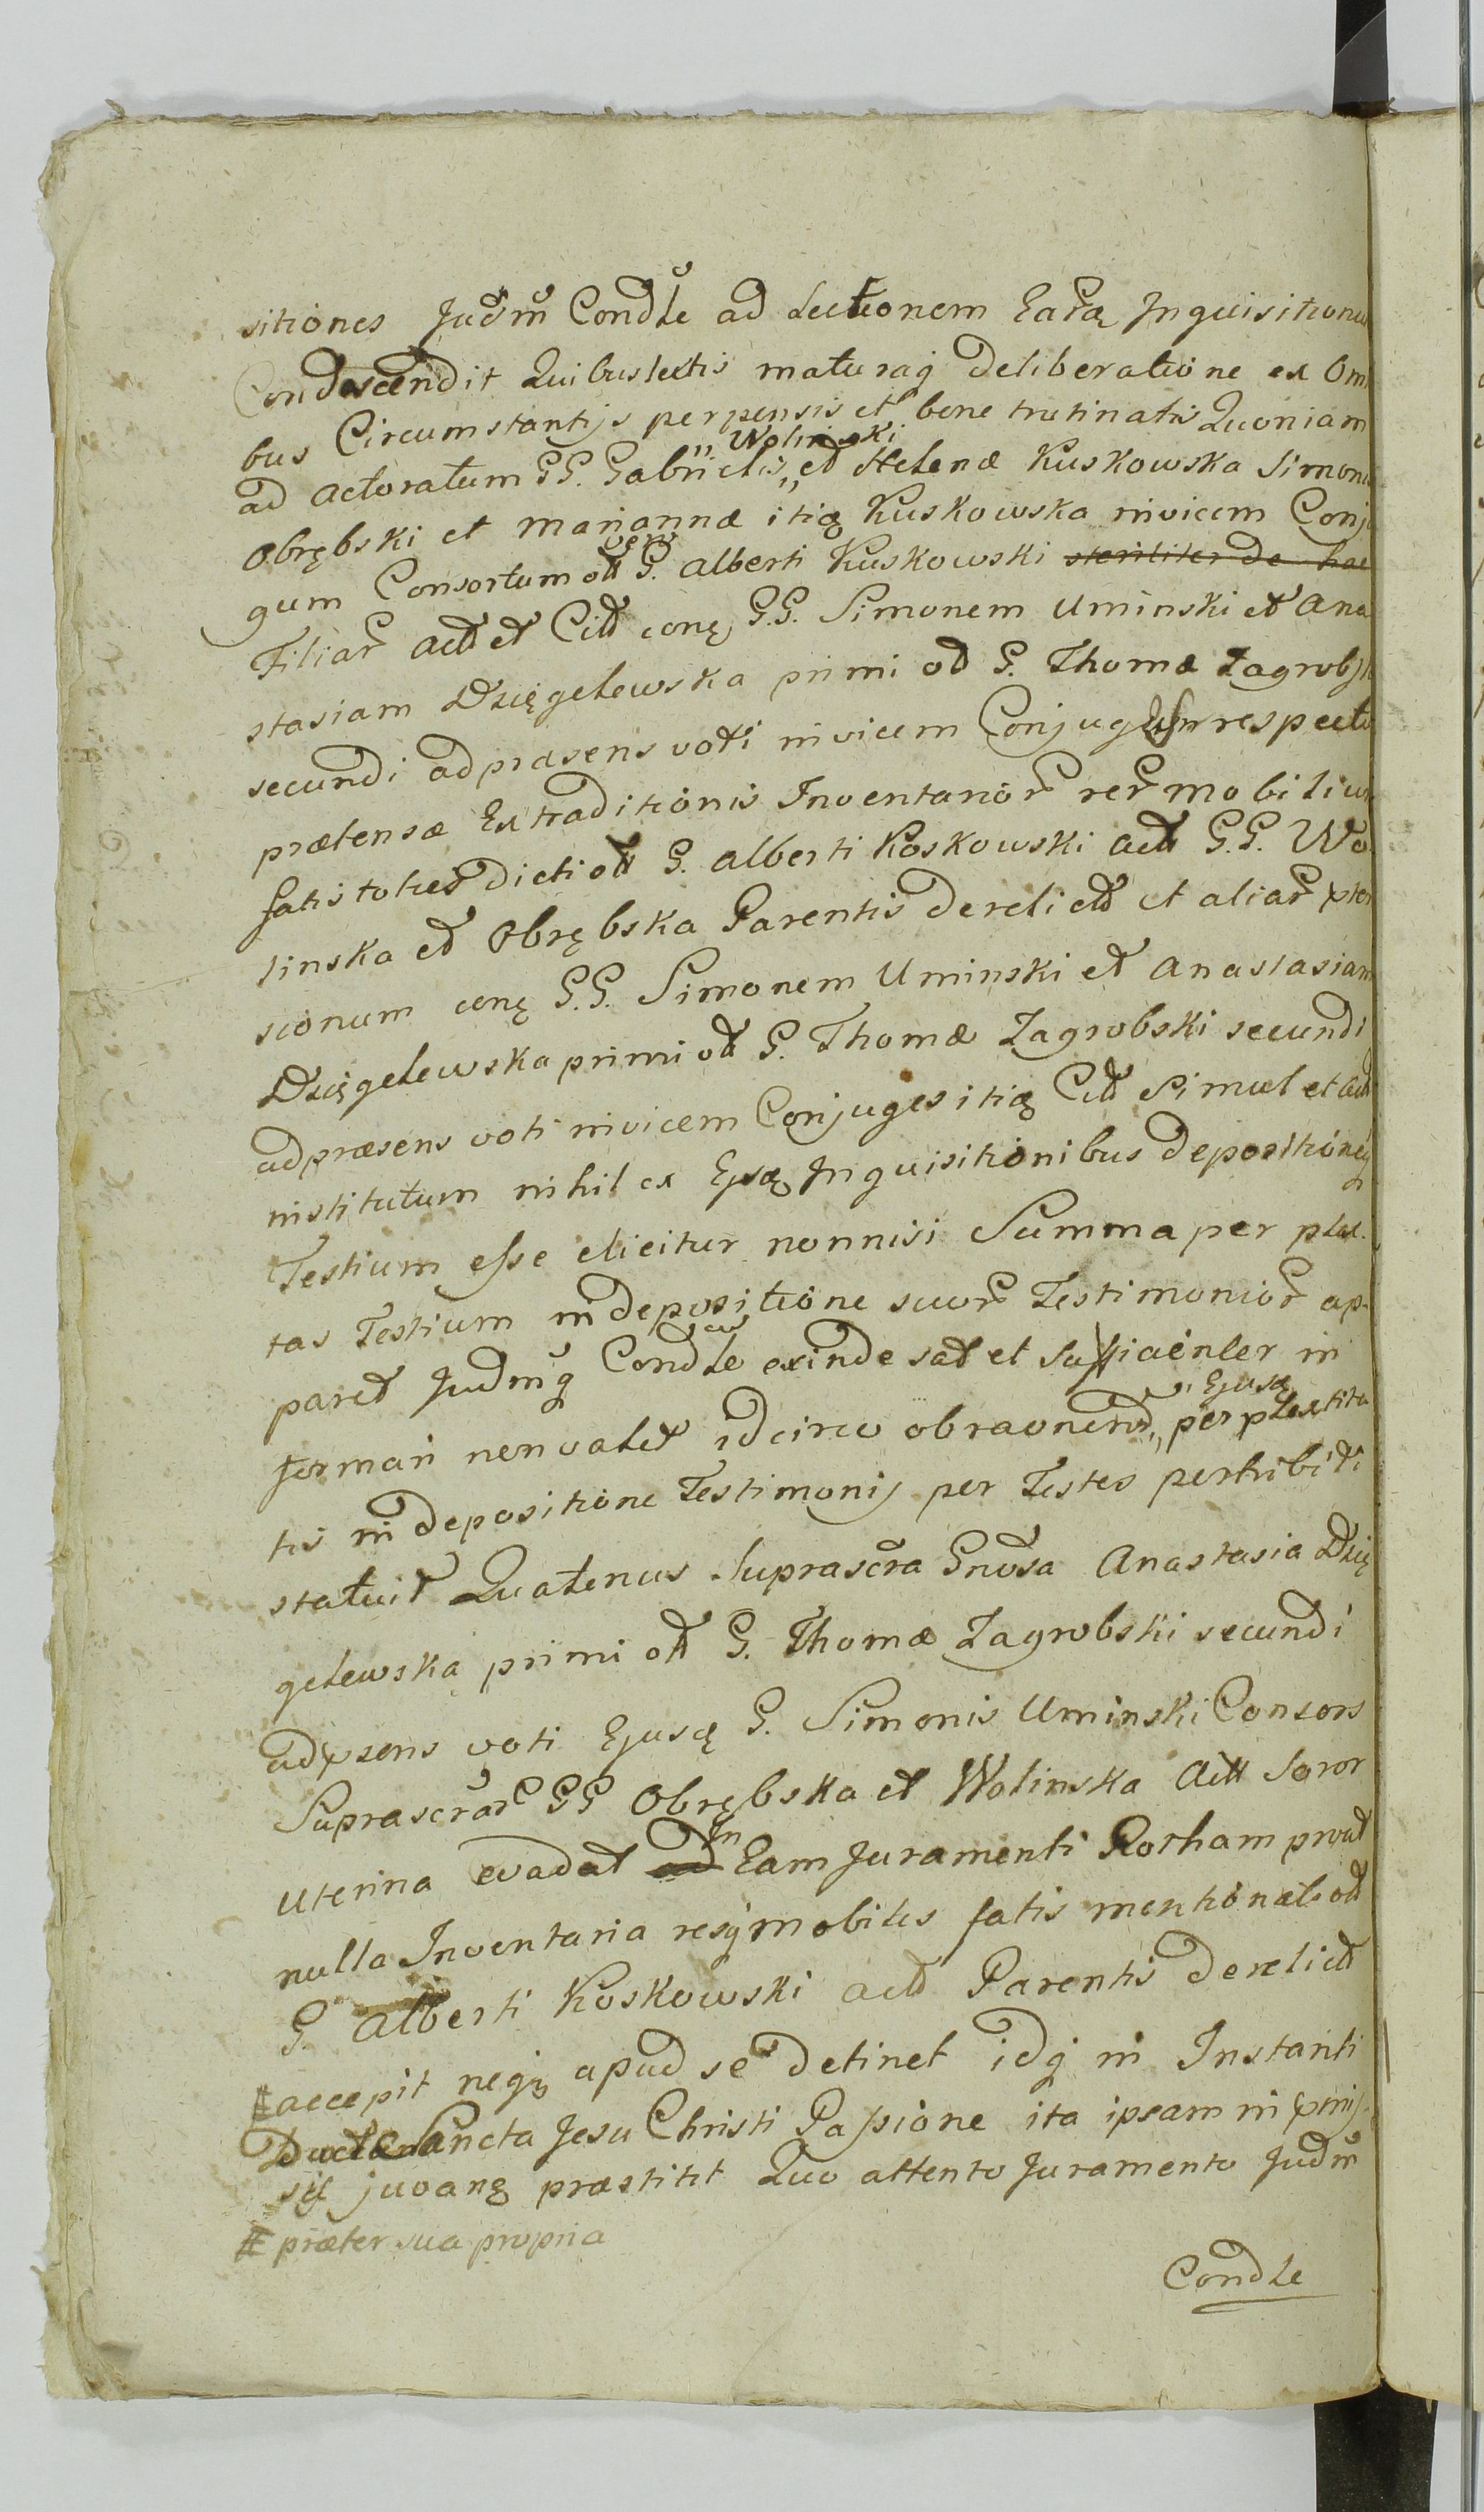 sitiones Judm Condle ad Lectionem Earq Inquisitionu
Condescendit Quibus lectis maturaq Deliberatione ex Om
bus Circumstantijs perpensis et bene trutinatis Quoniam
ad Actoratum GG. Gabrielis „Wolinski„ et Helenæ Kuskowska Simonis
Obrębski et Mariannæ itiq Kuskowska invicem Conju
gum Consortum vero od G. Alberti Kuskowski steriliter de hac
Filiar Actt et Citt conq G.G. Simonem Uminski et Ana
stasiam Dzięgelewska primi od G. Thomæ Zagrobsk
secundi ad præsens voti invicem Conjuges in respectu
prætensæ Extraditionis Inventarior rer mobiliu
satis toties dicti od G. Alberti Koskowski Actt G.G. Wo
linska et Obrębska Parentis derelictt et aliar pten
sionum conq G.G. Simonem Uminski et Anastasiam
Dzięgelewska primi od G. Thomæ Zagrobski secundi
ad præsens voti invicem Conjuges itiq Citt Simul et Actt
institutum nihil ex Ejsq Inquisitionibus depositioneq
Testium esse elicitur nonnisi Summa per plex.
tas Testium in depositione suor Testimonior ap.
paret Judmq Condle exinde sat et sufficienter in
formari non valet idcirco obraonend „Ejusq„ per plexita
tis in depositione Testimonij per Testes perhibiti
statuit Quatenus Suprascra Gnosa Anastasia Dzię
gelewska primi od G. Thomæ Zagrobski secundi
ad psens voti Ejusq G. Simonis Uminski Consors
Suprascrar GG Obrębska et Wolinska Actt Soror
Uterina evadat ad In Eam Juramenti Rotham prout
nulla Inventaria resq mobiles satis mentionat od
G. Alberti Koskowski actt Parentis derelictt
# accepit neqȝ apud se detinet idq in Instanti
Ducta Sancta Jesu Christi Passione ita ipsam in pmij
sis juvanq præstitit Quo attento Juramento Judm
# præter sua propria
Condle